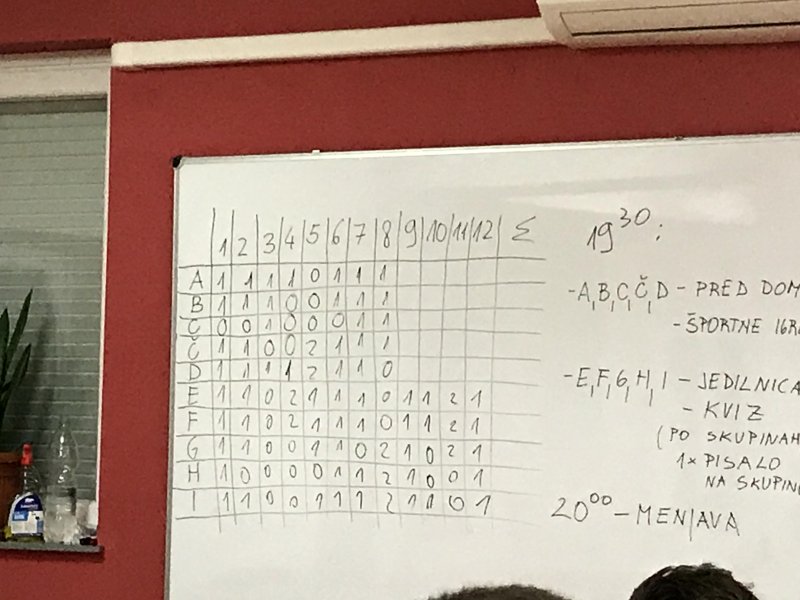 1 2 3 4 5 6 7 8 9 10 11 12 Σ
A 1 1 1 1 0 1 1 1
B 1 1 1 0 0 1 1 1
C 0 0 1 0 0 0 1 1
Č 1 1 0 0 2 1 1 1
D 1 1 1 1 2 1 1 0
E 1 1 0 2 1 1 1 0 1 1 2 1
F 1 1 0 2 1 1 1 0 1 1 2 1
G 1 1 0 0 1 1 0 2 1 0 2 1
H 1 0 0 0 0 1 1 2 1 0 0 1
I 1 1 0 0 1 1 1 2 1 1 0 1
19³⁰:
-A, B, C, Č, D - PRED DOM
- ŠPORTNE IGR
-E, F, G, H, I - JEDILNICA
- KVIZ
(PO SKUPINAH
1x PISALO
NA SKUPIN
20⁰⁰ - MENJAVA